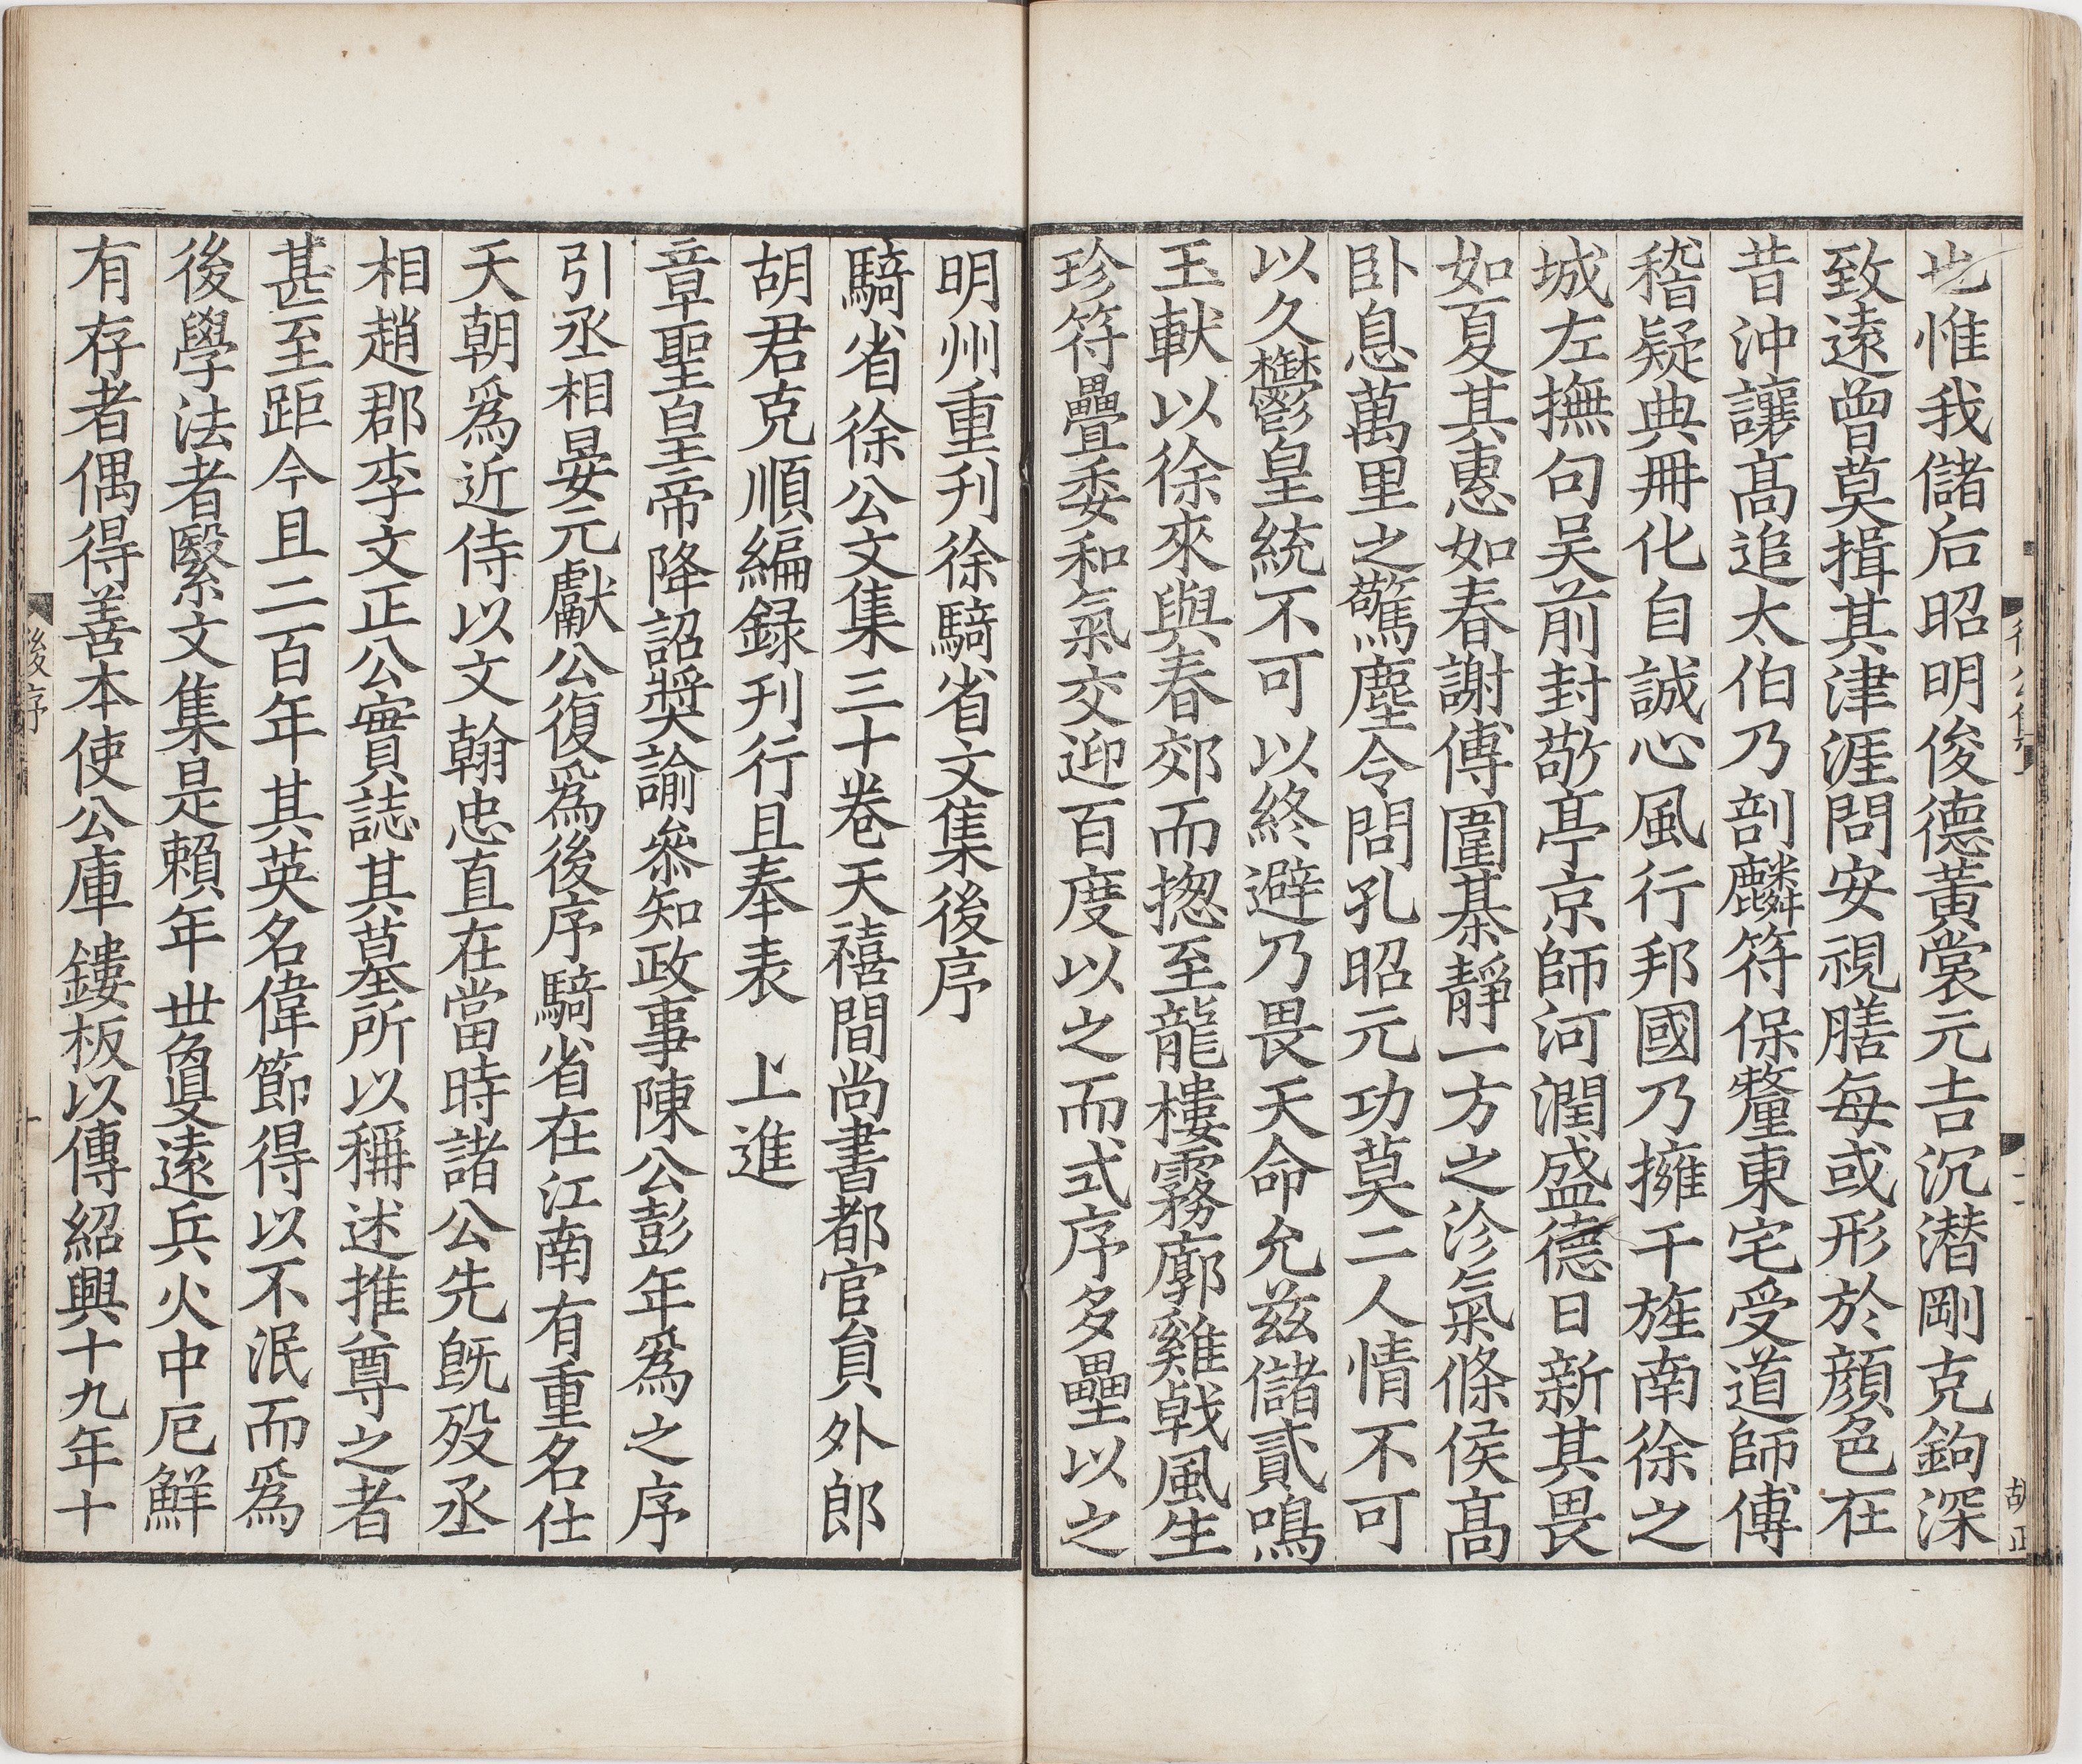 也惟我儲后昭明俊德黃裳元吉沉潛剛克鉤深
致遠曾莫揖其津涯問安視膳每或形於顏色在
昔沖讓髙追太伯乃剖麟符保釐東宅受道師傅
稽疑典冊化自誠心風行邦國乃擁干旌南徐之
城左撫句吴前封敬亭京師河潤盛德日新其畏
如夏其惠如春謝傅圍棊靜一方之沴氣條侯髙
卧息萬里之驚塵令問孔昭元功莫二人情不可
以久鬱皇統不可以終避乃畏天命允兹儲貳鳴
玉軑以徐來與春郊而揔至龍樓霧廓雞戟風生
珍符疊委和氣交迎百度以之而式序多壘以之
明州重刊徐騎省文集後序
騎省徐公文集三十卷天禧間尚書都官負外郎
胡君克順編録刋行且奉表 上進
章聖皇帝降詔奬諭叅知政事陳公彭年爲之序
引丞相晏元獻公復爲後序騎省在江南有重名仕
天朝爲近侍以文翰忠直在當時諸公先旣歿丞
相趙郡李文正公實誌其墓所以稱述推尊之者
甚至距今且二百年其英名偉節得以不泯而爲
後學法者繄文集是賴年丗敻遠兵火中厄鮮
有存者偶得善本使公庫鏤板以傳紹興十九年十
後序
胡正